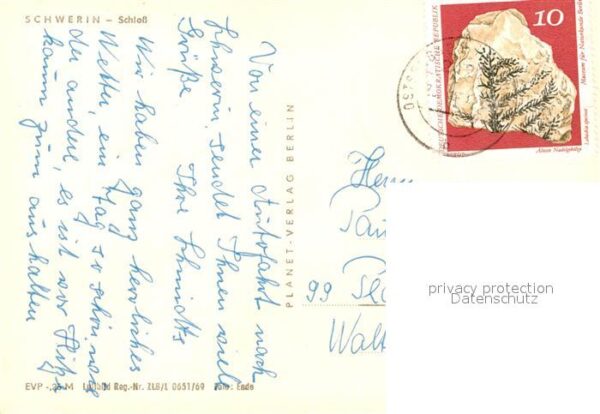 SCHWERIN – Schloß
Von einer Autofahrt nach
Schwerin sendet Ihnen viele
Grüße Ihre Schmidts
Wir haben ganz herrliches
Wetter, ein Tag so schön wie
der andere, es ist vor Hitze
kaum zum aushalten
PLANET-VERLAG BERLIN
EVP -,25 M Luftbild Reg.-Nr. ZLB/L 0651/69 Foto: Ende
10
DEUTSCHE DEMOKRATISCHE REPUBLIK
Museum für Naturkunde Berlin
Herrn
99
privacy protection
Datenschutz